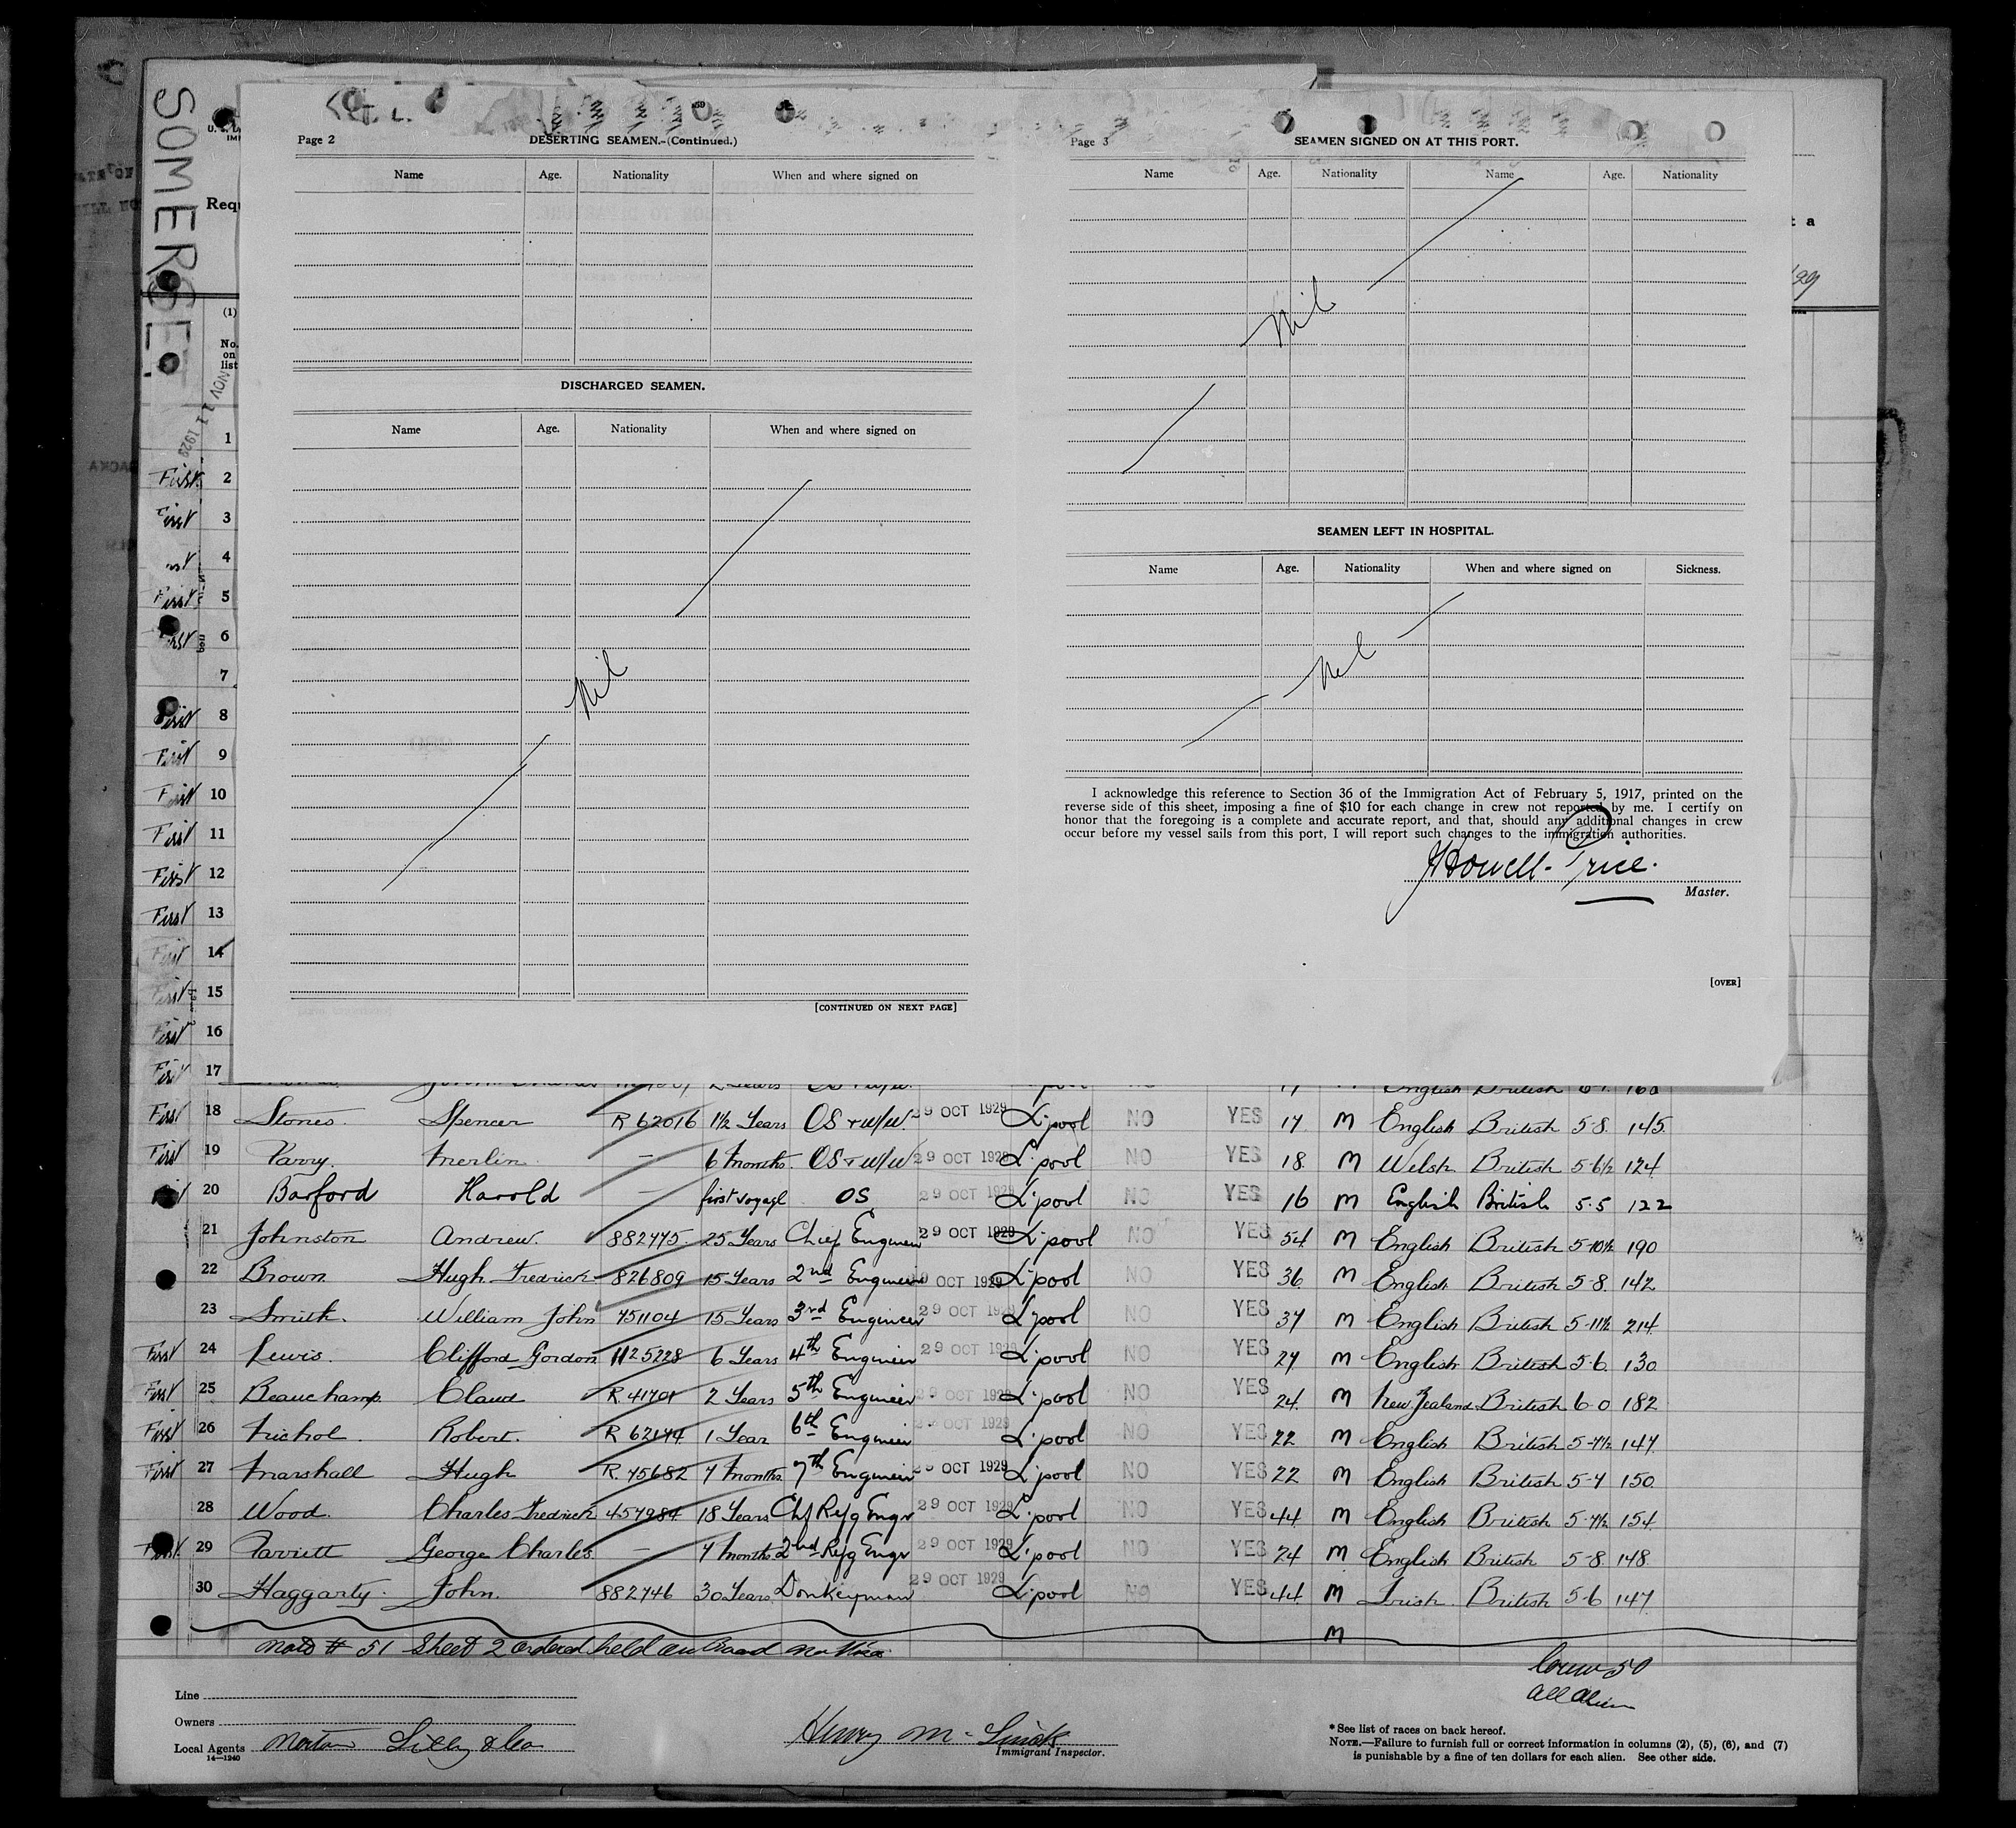 SOMERSET.
Page 2
DESERTING SEAMEN.-(Continued.)
Name Age. Nationality When and where signed on
DISCHARGED SEAMEN.
Name Age. Nationality When and where signed on
Nil
[CONTINUED ON NEXT PAGE]
Page 3
SEAMEN SIGNED ON AT THIS PORT.
Name Age. Nationality Name Age. Nationality
Nil
SEAMEN LEFT IN HOSPITAL.
Name Age. Nationality When and where signed on Sickness.
Nil
I acknowledge this reference to Section 36 of the Immigration Act of February 5, 1917, printed on the
reverse side of this sheet, imposing a fine of $10 for each change in crew not reported by me. I certify on
honor that the foregoing is a complete and accurate report, and that, should any additional changes in crew
occur before my vessel sails from this port, I will report such changes to the immigration authorities.
J Howell-Price.
Master.
[OVER]
(1)
No.
on
list
NOV 11 1929
1
First 2
First 3
4
First 5
First 6
7
First 8
First 9
First 10
First 11
First 12
First 13
First 14
First 15
First 16
First 17 English British 160
First 18 Stones. Spencer R 62016 1½ Years OS + w/w. 29 OCT 1929 L'pool NO YES 17 M English British 5-8. 145.
First 19 Parry. Merlin. — 6 Months. OS + w/w 29 OCT 1929 L'pool NO YES 18. M Welsh British 5-6½ 124.
20 Barford Harold — first voyage OS 29 OCT 1929 L'pool NO YES 16 M English British 5.5 122
21 Johnston Andrew. 882775. 25 Years Chief Engineer 29 OCT 1929 L'pool NO YES 54. M English British 5-10½ 190
22 Brown Hugh Fredrick 826809 15 Years 2nd Engineer 29 OCT 1929 L'pool NO YES 36. M English British 5-8. 142
23 Smith. William John 751104 15 Years 3rd Engineer 29 OCT 1929 L'pool NO YES 37 M English British 5-11½ 214.
First 24 Lewis. Clifford Gordon 1125228 6 Years 4th Engineer 29 OCT 1929 L'pool NO YES 27 M English British 5-6. 130
First 25 Beauchamp. Claud R. 41701 2 Years 5th Engineer 29 OCT 1929 L'pool NO YES 24. M New Zealand British 6-0 182
First 26 Nichol. Robert. R 62144 1 Year 6th Engineer 29 OCT 1929 L'pool NO YES 22 M English British 5-7½ 147.
First 27 Marshall Hugh R. 75682 7 Months 7th Engineer 29 OCT 1929 L'pool NO YES 22 M English British 5-7 150
28 Wood. Charles Fredrick 457984 18 Years Chf Refg Engr 29 OCT 1929 L'pool NO YES 44. M English British 5-7½ 154.
First 29 Parriett George Charles — 7 Months 2nd Refg Engr 29 OCT 1929 L'pool NO YES 24 M English British 5-8 148.
30 Haggarty. John. 882746 30 Years Donkeyman 29 OCT 1929 L'pool NO YES 44. M Irish British 5-6 147.
M
# 51 Sheet 2 ordered held on board
Crew 50
All Alien
Line
Owners
Local Agents Norton Lilly & Co
14—1240
Henry M.
Immigrant Inspector.
* See list of races on back hereof.
NOTE.—Failure to furnish full or correct information in columns (2), (5), (6), and (7)
is punishable by a fine of ten dollars for each alien. See other side.